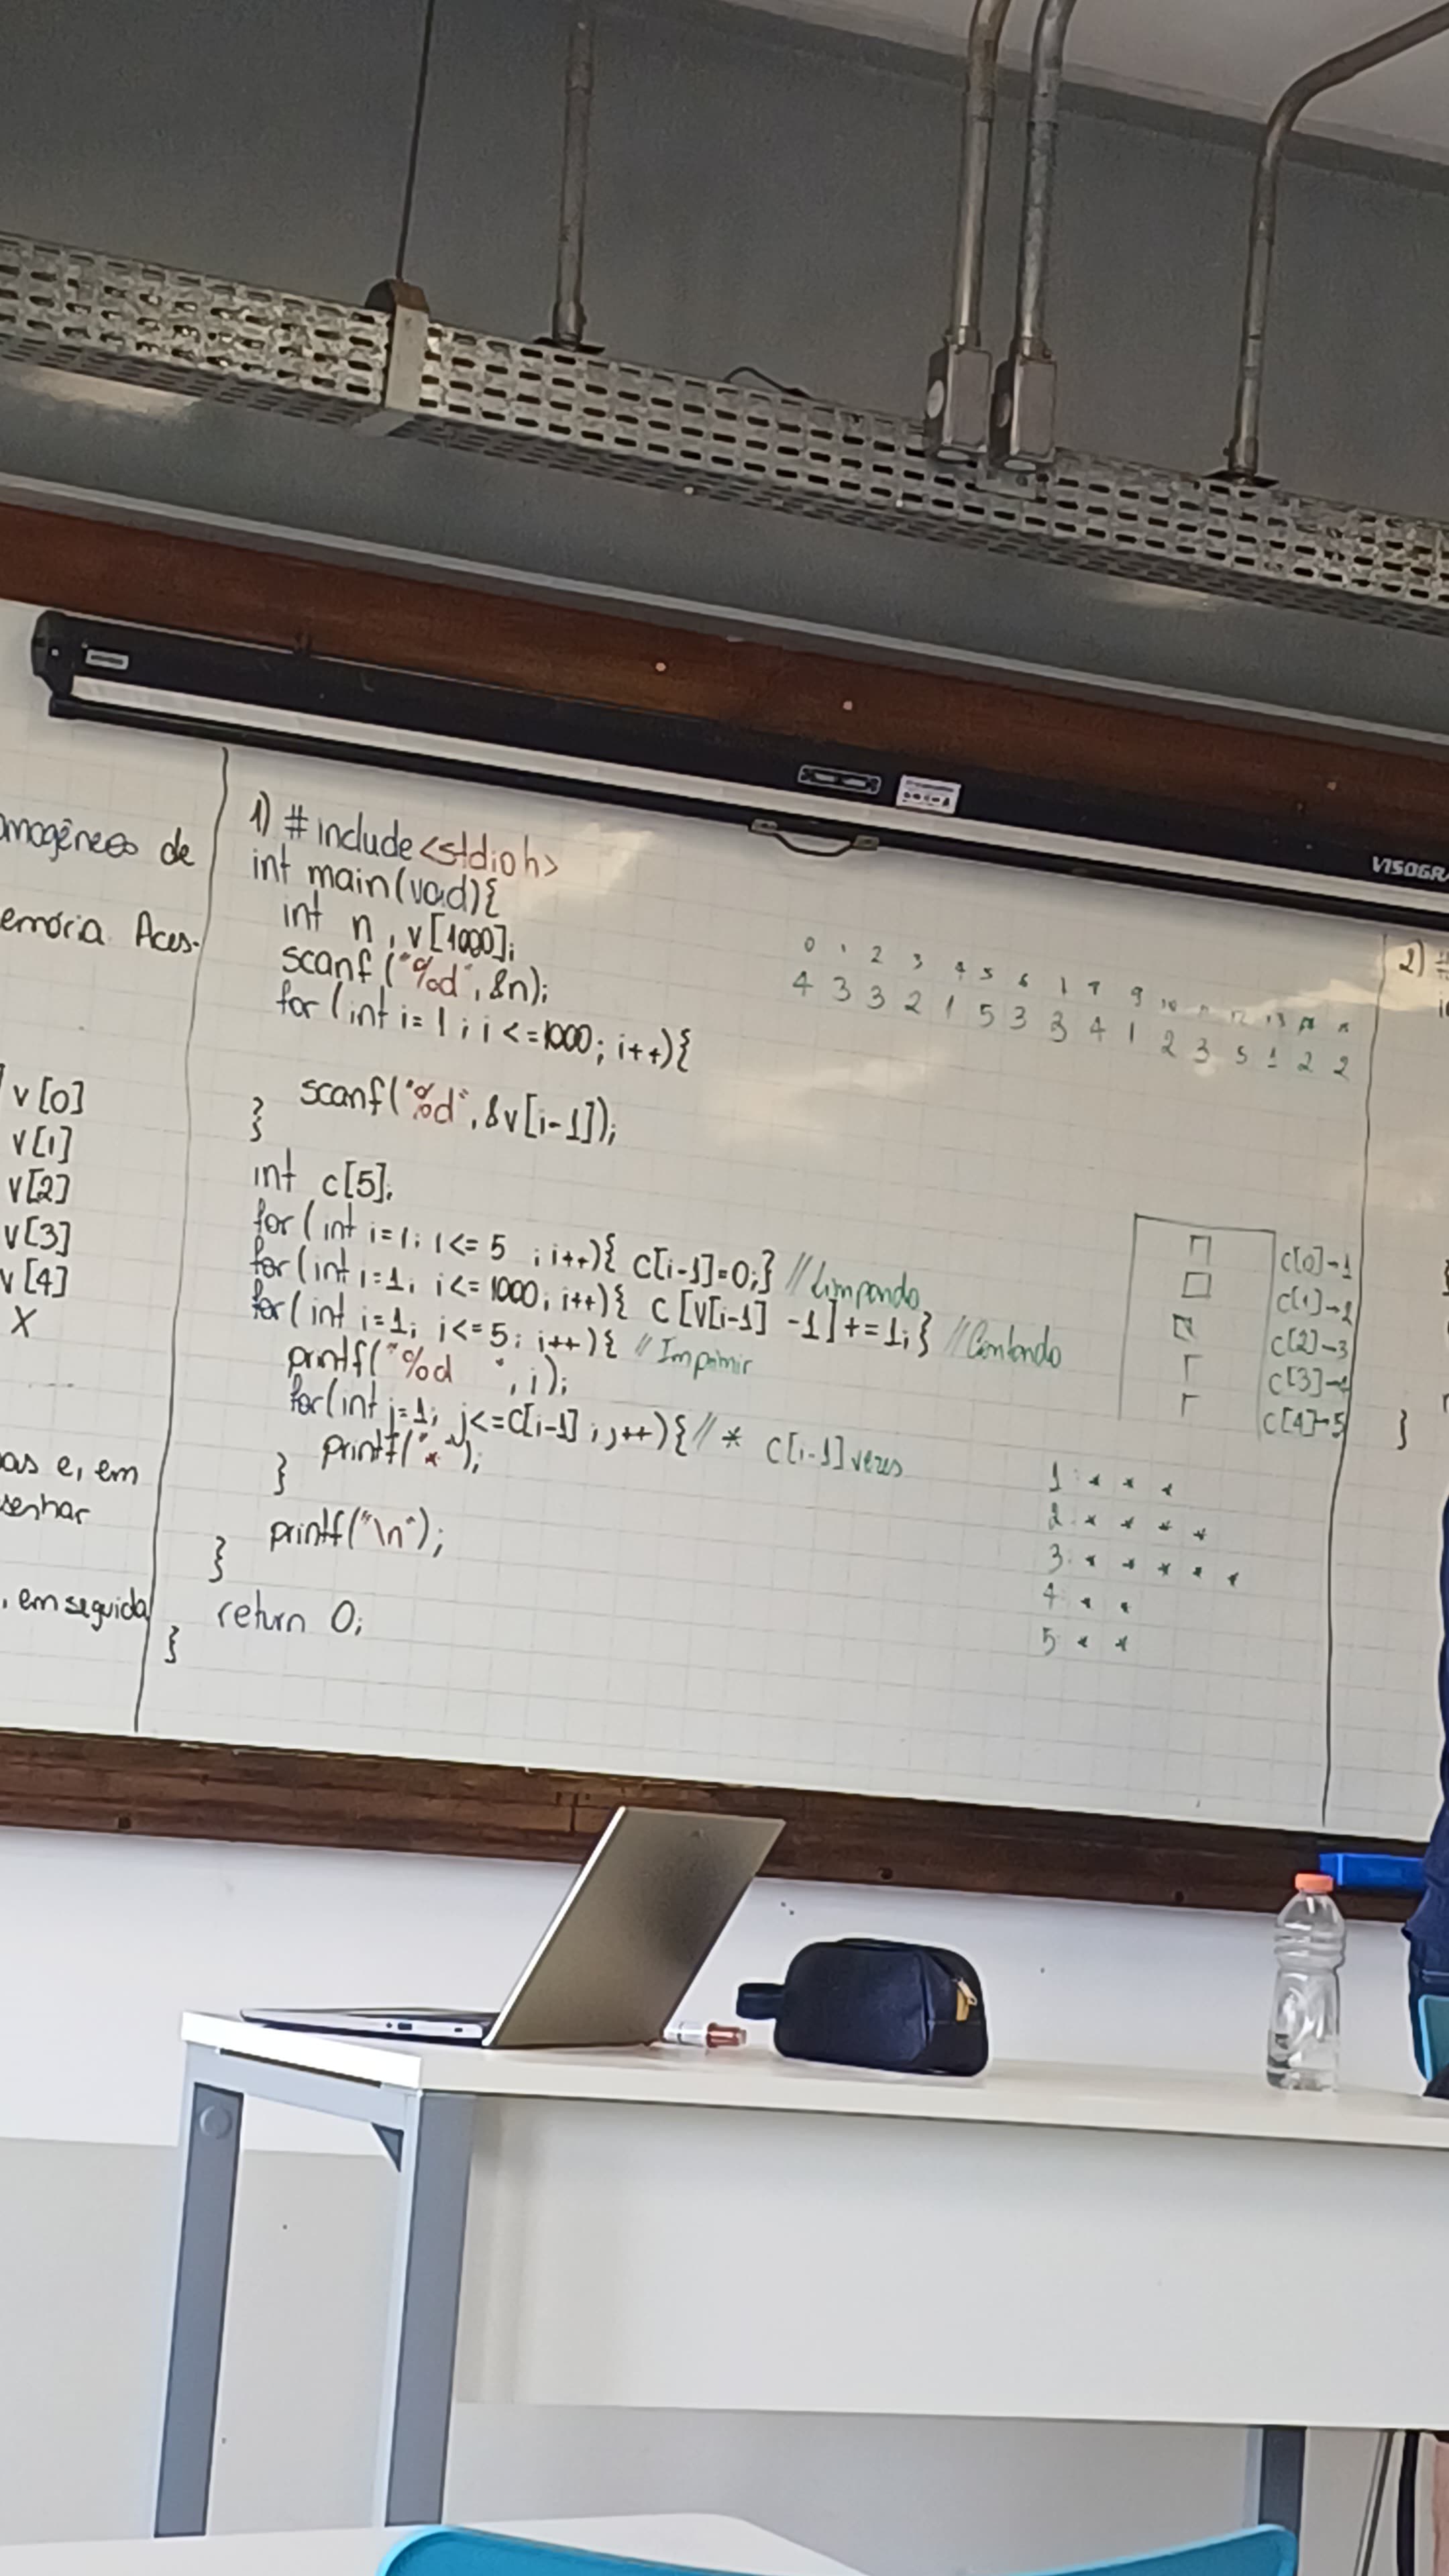 de
Aces-
v[0]
v[1]
v[2]
v[3]
v[4]
X
e, em
, em seguida
1) #include <stdioh>
int main(void){
int n, v[1000];
scanf("%d", &n);
for (int i=1; i<=1000; i++){
scanf("%d", &v[i-1]);
}
int c[5];
for (int i=1; i<=5 ; i++){ c[i-1]=0;} //Limpando
for (int i=1; i<=1000; i++){ c[v[i-1] -1]+=1;} //Contando
for (int i=1; i<=5; i++){ //Imprimir
printf("%d ", i);
for(int j=1; j<=c[i-1]; j++){ //* c[i-1] vezes
printf("*");
}
printf("\n");
}
return 0;
}
4 3 3 2 1 5 3 3 4 1 2 3 5 1 2 2
c[0]→1
c[1]→2
c[2]→3
c[3]→4
c[4]→5
1: * * *
2: * * * *
3: * * * * *
4: * *
5: * *
2)
}
VISOGR